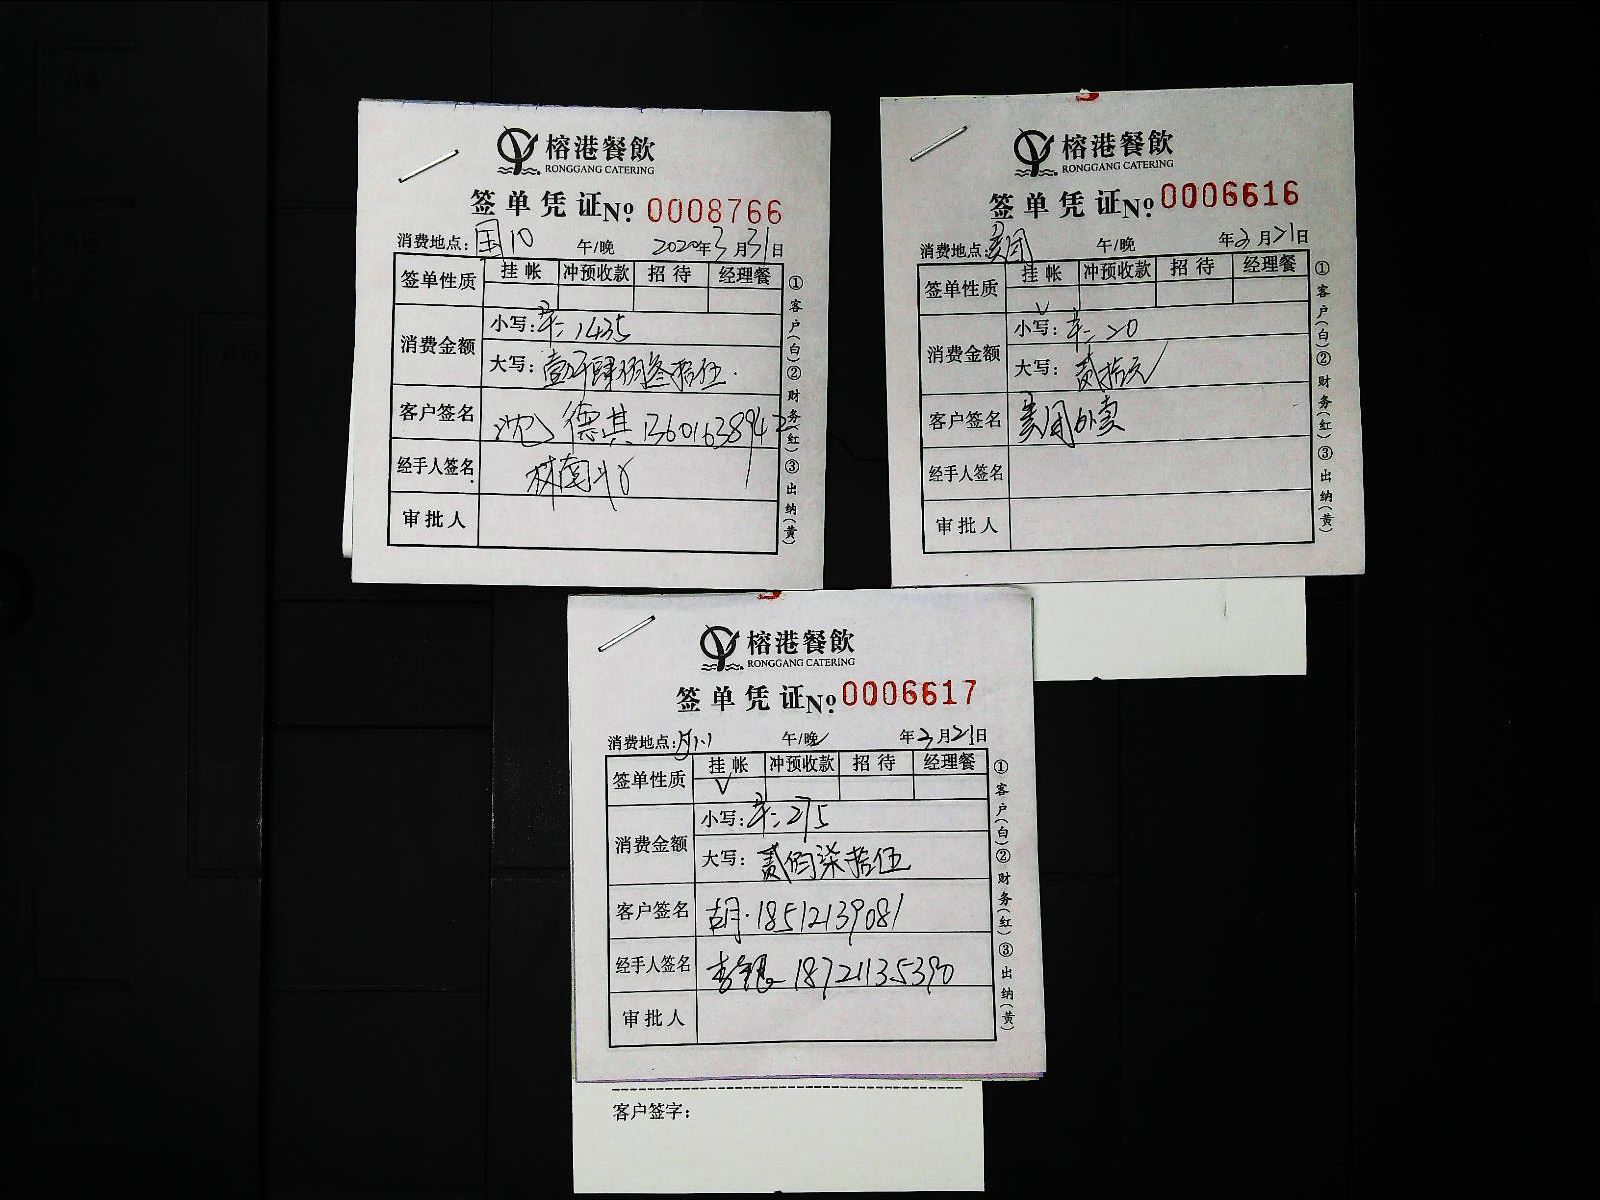 榕港餐飲
RONGGANG CATERING
签单凭证 No. 0008766
消费地点: 国10 午/晚 2020年3月31日
签单性质 挂帐 冲预收款 招待 经理餐
消费金额 小写: 1435
大写: 壹仟肆佰叁拾伍
客户签名 沈德其 13601638942
经手人签名 林
审批人
①客户(白)②财务(红)③出纳(黄)
榕港餐飲
RONGGANG CATERING
签单凭证 No. 0006616
消费地点: 美团 午/晚 年3月21日
签单性质 挂帐 冲预收款 招待 经理餐
消费金额 小写: 20
大写: 贰拾元
客户签名 美团外卖
经手人签名
审批人
①客户(白)②财务(红)③出纳(黄)
榕港餐飲
RONGGANG CATERING
签单凭证 No. 0006617
消费地点: 午/晚 年3月21日
签单性质 挂帐 冲预收款 招待 经理餐
消费金额 小写: 275
大写: 贰佰柒拾伍
客户签名 胡·18512139081
经手人签名 18721135390
审批人
①客户(白)②财务(红)③出纳(黄)
客户签字: